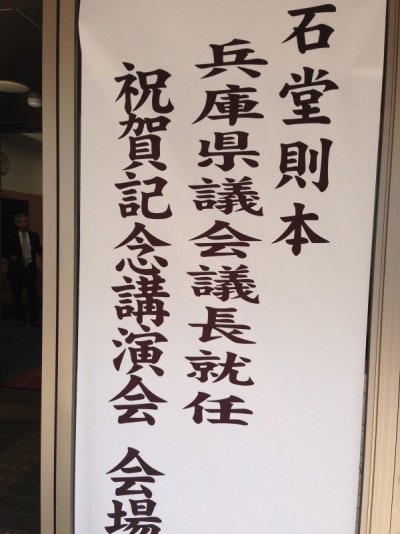 石堂則本
兵庫県議会議長就任
祝賀記念講演会 会場